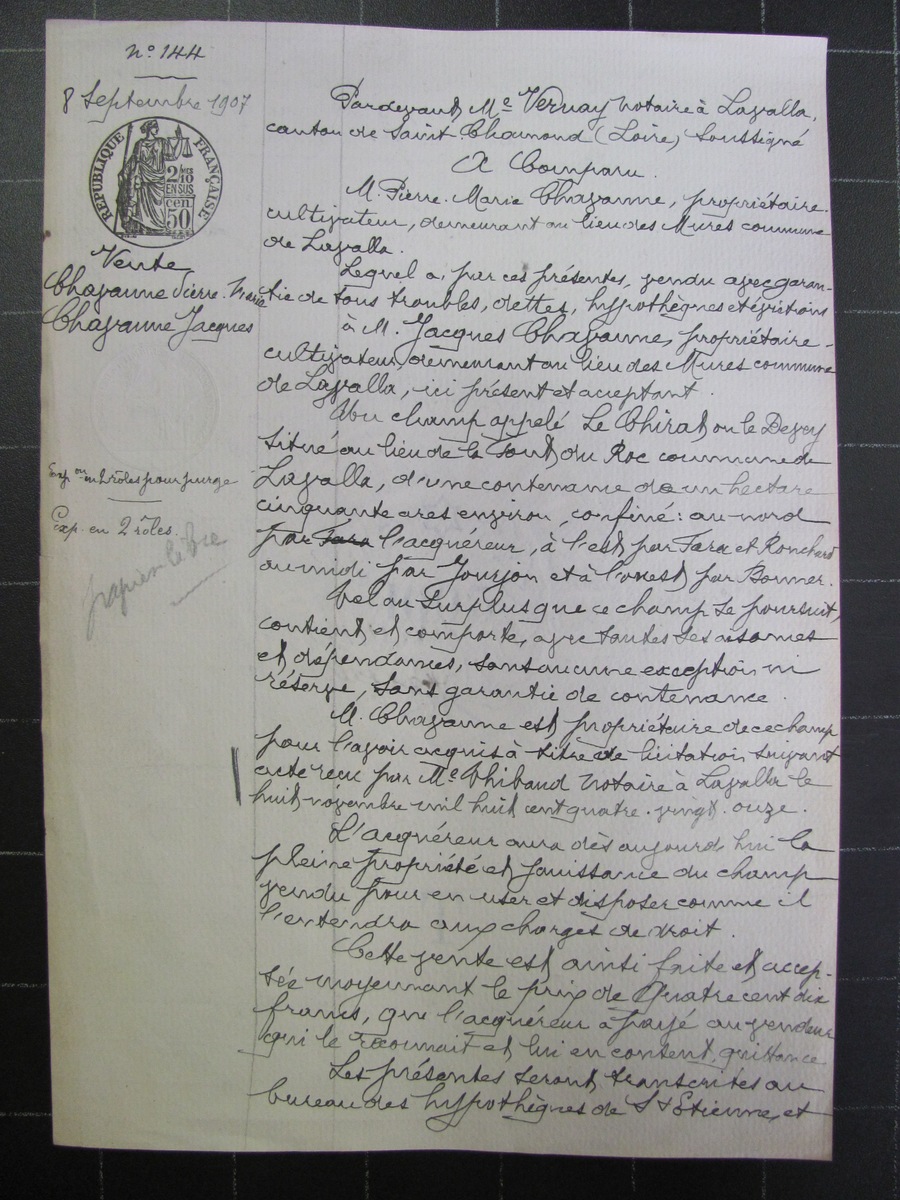 n° 144
8 Septembre 1907
RÉPUBLIQUE FRANÇAISE
2/10 MES
EN SUS
50 cen
Vente
Chavanne Pierre. Marie
Chavanne Jacques
Exp on en 2 rôles pour purge
Exp. en 2 rôles.
papier libre
Pardevant Me Vernay notaire à Lavalla,
canton de Saint Chamond (Loire) soussigné
A Comparu.
M. Pierre. Marie Chavanne, propriétaire.
cultivateur, demeurant au lieu des Mures commune
de Lavalla.
Lequel a, par ces présentes, vendu avec garan-
tie de tous troubles, dettes, hypothègnes et évictions
à M. Jacques Chavanne, propriétaire-
cultivateur, demeurant au lieu des Mures commune
de Lavalla, ici présent et acceptant.
Un champ appelé Le Chirat ou le Devey
situé au lieu de la Font du Roc commune de
Lavalla, d'une contenance de un hectare
cinquante ares environ, confiné: au nord
par Fara l'acquéreur, à l'est par Fara et Ronchard
au midi par Jourjon et à l'ouest par Bonner.
Tel au surplus que ce champ se poursuit,
contient et comporte, avec toutes ses aisances
et dépendances, sans aucune exception ni
réserve, sans garantie de contenance.
M. Chavanne est propriétaire de ce champ
pour l'avoir acquis à titre de licitation suivant
acte reçu par Me Thibaud notaire à Lavalla le
huit novembre mil huit cent quatre. vingt. onze.
L'acquéreur aura dès aujourd hui la
pleine propriété et jouissance du champ
vendu pour en user et disposer comme il
l'entendra aux charges de droit.
Cette vente est ainsi faite et accep-
tée moyennant le prix de Quatre cent dix
francs, que l'acquéreur a payé au vendeur
qui le reconnait et lui en consent quittance
Les présentes seront transcrites au
bureau des hypothègnes de St Etienne, et